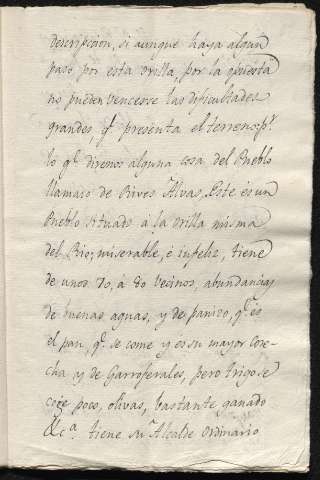 descripcion, si aunque haya algun
paso por esta orilla, por la opuesta
no pueden vencerse las dificultades
grandes, qᵉ presenta el terreno: pʳ.
lo qᵉ diremos alguna cosa del Pueblo
llamado de Rives Alvas. Este es un
Pueblo situado á la orilla misma
del Rio; miserable, é infeliz, tiene
de unos 70, á 80 vecinos, abundancia
de buenas aguas, y de panizo, qᵉ. es
el pan, qᵉ. se come y es su mayor cose-
cha y de Garroferales, pero trigo se
coge poco, olivas, bastante ganado
&cª. tiene su Alcalde ordinario